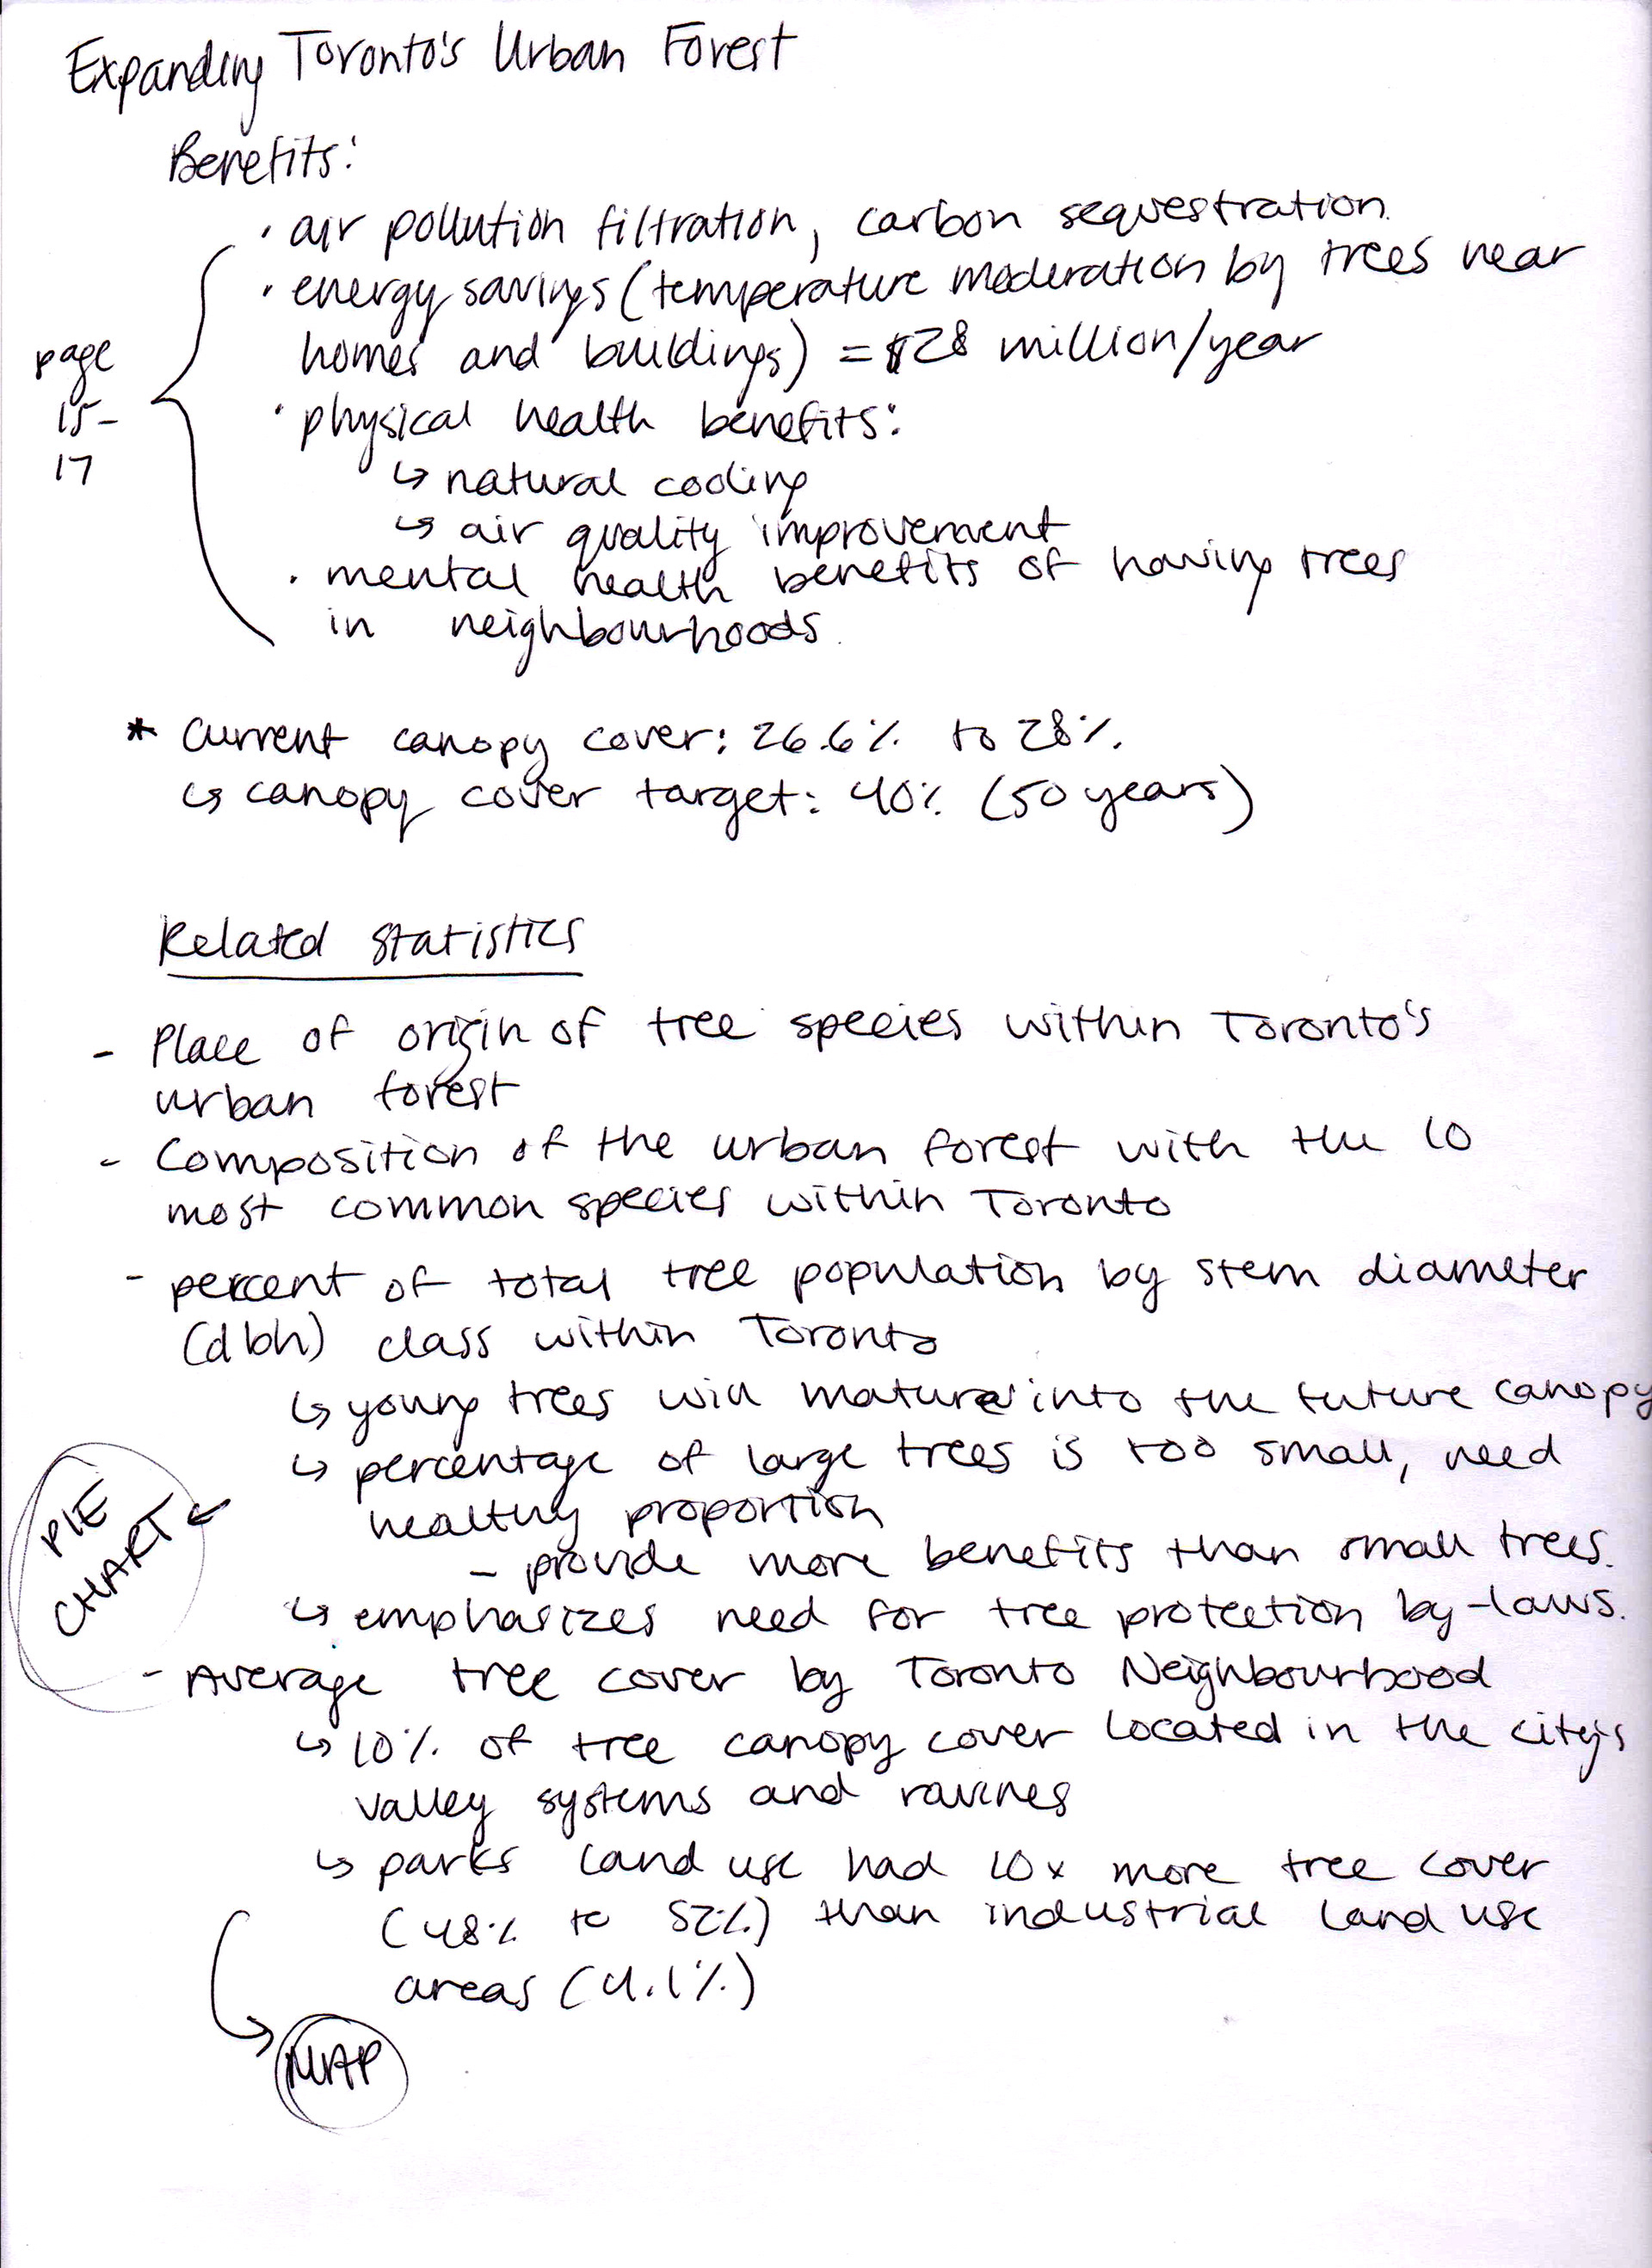 Expanding Toronto's Urban Forest
Benefits:
· air pollution filtration, carbon sequestration.
· energy savings (temperature moderation by trees near
homes and buildings) = $28 million/year
page
15-
17
· physical health benefits:
↳ natural cooling
↳ air quality improvement
· mental health benefits of having trees
in neighbourhoods.
* Current canopy cover: 26.6% to 28%.
↳ canopy cover target: 40% (50 years)
Related Statistics
- Place of origin of tree species within Toronto's
urban forest
- Composition of the urban forest with the 10
most common species within Toronto
- percent of total tree population by stem diameter
(dbh) class within Toronto
↳ young trees will mature into the future canopy
↳ percentage of large trees is too small, need
healthy proportion
- provide more benefits than small trees.
PIE
CHART ←
↳ emphasizes need for tree protection by-laws.
- Average tree cover by Toronto Neighbourhood
↳ 10% of tree canopy cover located in the city's
valley systems and ravines
↳ parks land use had 10x more tree cover
(48% to 52%) than industrial land use
areas (4.1%)
MAP